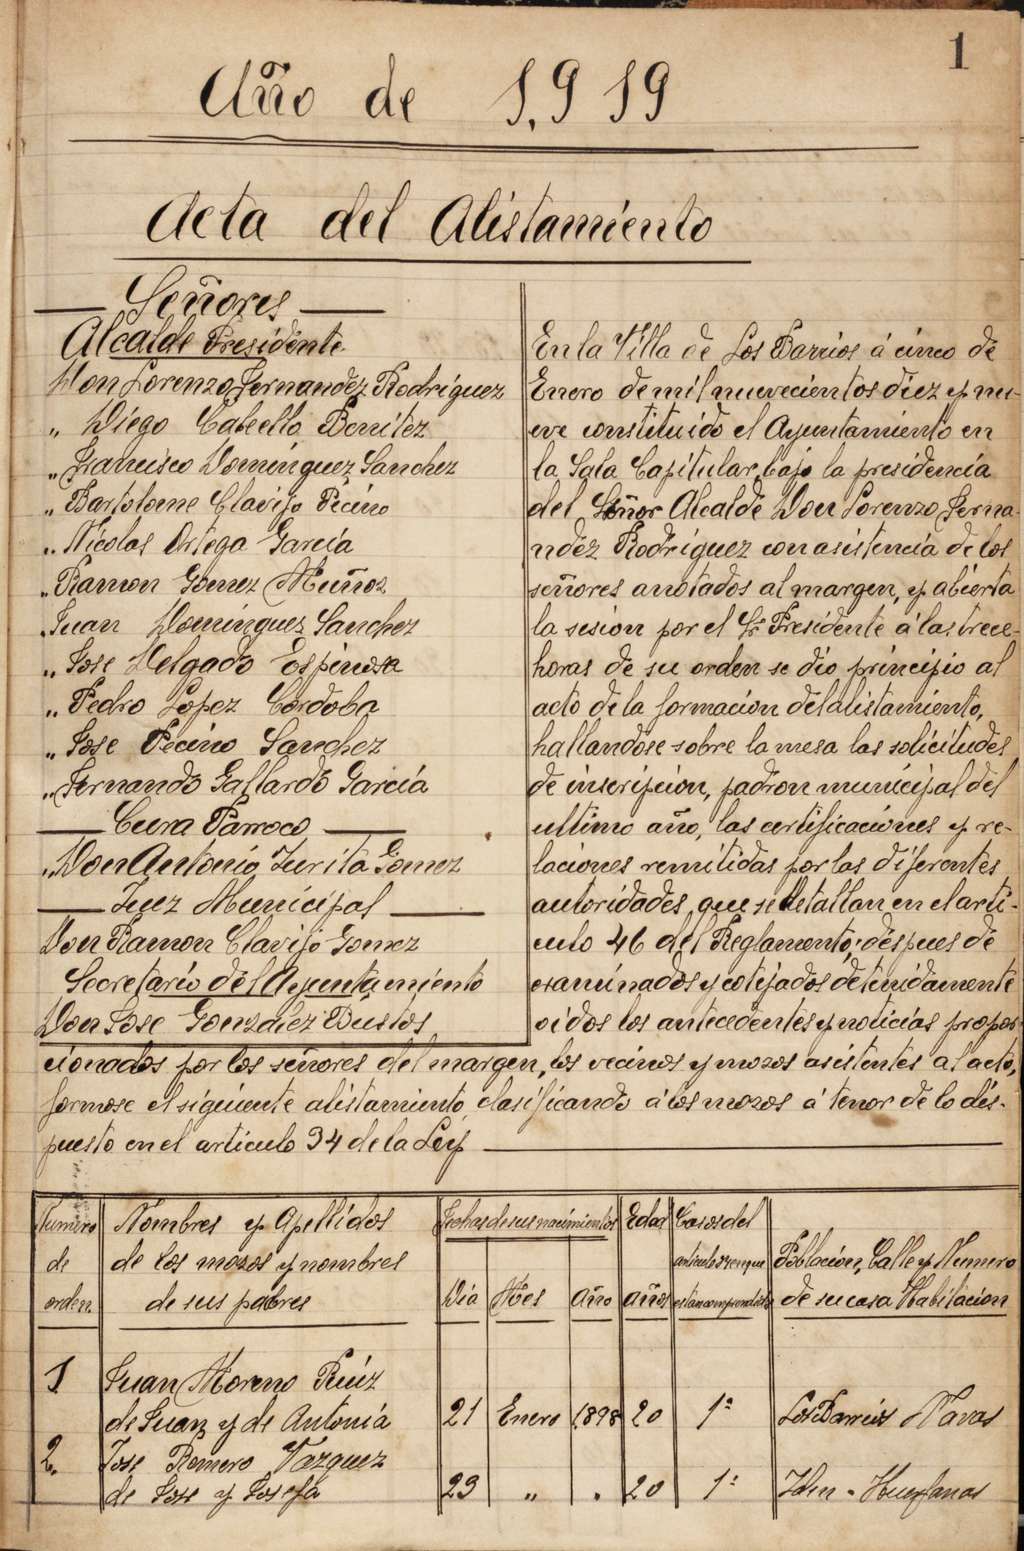 1
Año de 1.919
Acta del Alistamiento
Señores
Alcalde Presidente
Don Lorenzo Fernandez Rodriguez
„ Diego Cabello Benitez
„ Francisco Dominguez Sanchez
„ Bartolome Clavijo Pecino
„ Nicolas Ortega Garcia
„ Ramon Gomez Muñoz
„ Juan Dominguez Sanchez
„ Jose Delgado Espinosa
„ Pedro Lopez Cordoba
„ Jose Pecino Sanchez
„ Fernando Gallardo Garcia
Cura Parroco
„ Don Antonio Jurita Gomez
Juez Municipal
Don Ramon Clavijo Gomez
Secretario del Ayuntamiento
Don Jose Gonzalez Bustos
En la Villa de Los Barrios á cinco de
Enero de mil nuevecientos diez y nu-
eve constituido el Ayuntamiento en
la Sala Capitular, bajo la presidencia
del Señor Alcalde Don Lorenzo Ferna-
ndez Rodriguez con asistencia de los
señores anotados al margen, y abierta
la sesion por el Sr. Presidente á las trece
horas de su orden se dio principio al
acto de la formacion del alistamiento,
hallandose sobre la mesa las solicitudes
de inscripcion, padron municipal del
ultimo año, las certificaciones y re-
laciones remitidas por las diferentes
autoridades, que se detallan en el arti-
culo 46 del Reglamento; despues de
examinados y cotejados detenidamente
oidos los antecedentes y noticias propor
cionados por los señores del margen, los vecinos y mozos asistentes al acto,
formose el siguiente alistamiento, clasificando á los mozos á tenor de lo dis-
puesto en el articulo 34 de la Ley
Numero de orden
Nombres y Apellidos de los mozos y nombres de sus padres
Fechas de sus nacimientos
Dia Mes Año
Edad años
Casos del articulo 34 en que estan comprendidos
Poblacion, Calle y Numero de su casa Habitacion
1 Juan Moreno Ruiz
de Juan y de Antonia 21 Enero 1898 20 1º Los Barrios Navas
2. Jose Romero Vazquez
de Jose y Josefa 23 „ „ 20 1º Idem - Huerfanas